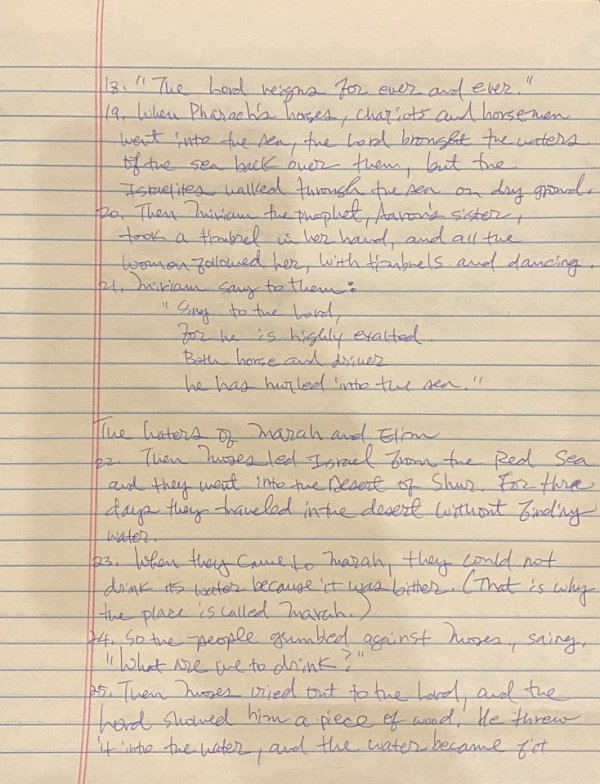 18. "The Lord reigns for ever and ever."
19. When Pharaoh's horses, chariots and horsemen
went into the sea, the Lord brought the waters
of the sea back over them, but the
Israelites walked through the sea on dry ground.
20. Then Miriam the prophet, Aaron's sister,
took a timbrel in her hand, and all the
women followed her, with timbrels and dancing.
21. Miriam sang to them:
"Sing to the Lord,
for he is highly exalted.
Both horse and driver
he has hurled into the sea."
The Waters of Marah and Elim
22. Then Moses led Israel from the Red Sea
and they went into the Desert of Shur. For three
days they traveled in the desert without finding
water.
23. When they came to Marah, they could not
drink its water because it was bitter. (That is why
the place is called Marah.)
24. So the people grumbled against Moses, saing,
"What are we to drink?"
25. Then Moses cried out to the Lord, and the
Lord showed him a piece of wood. He threw
it into the water, and the water became fit